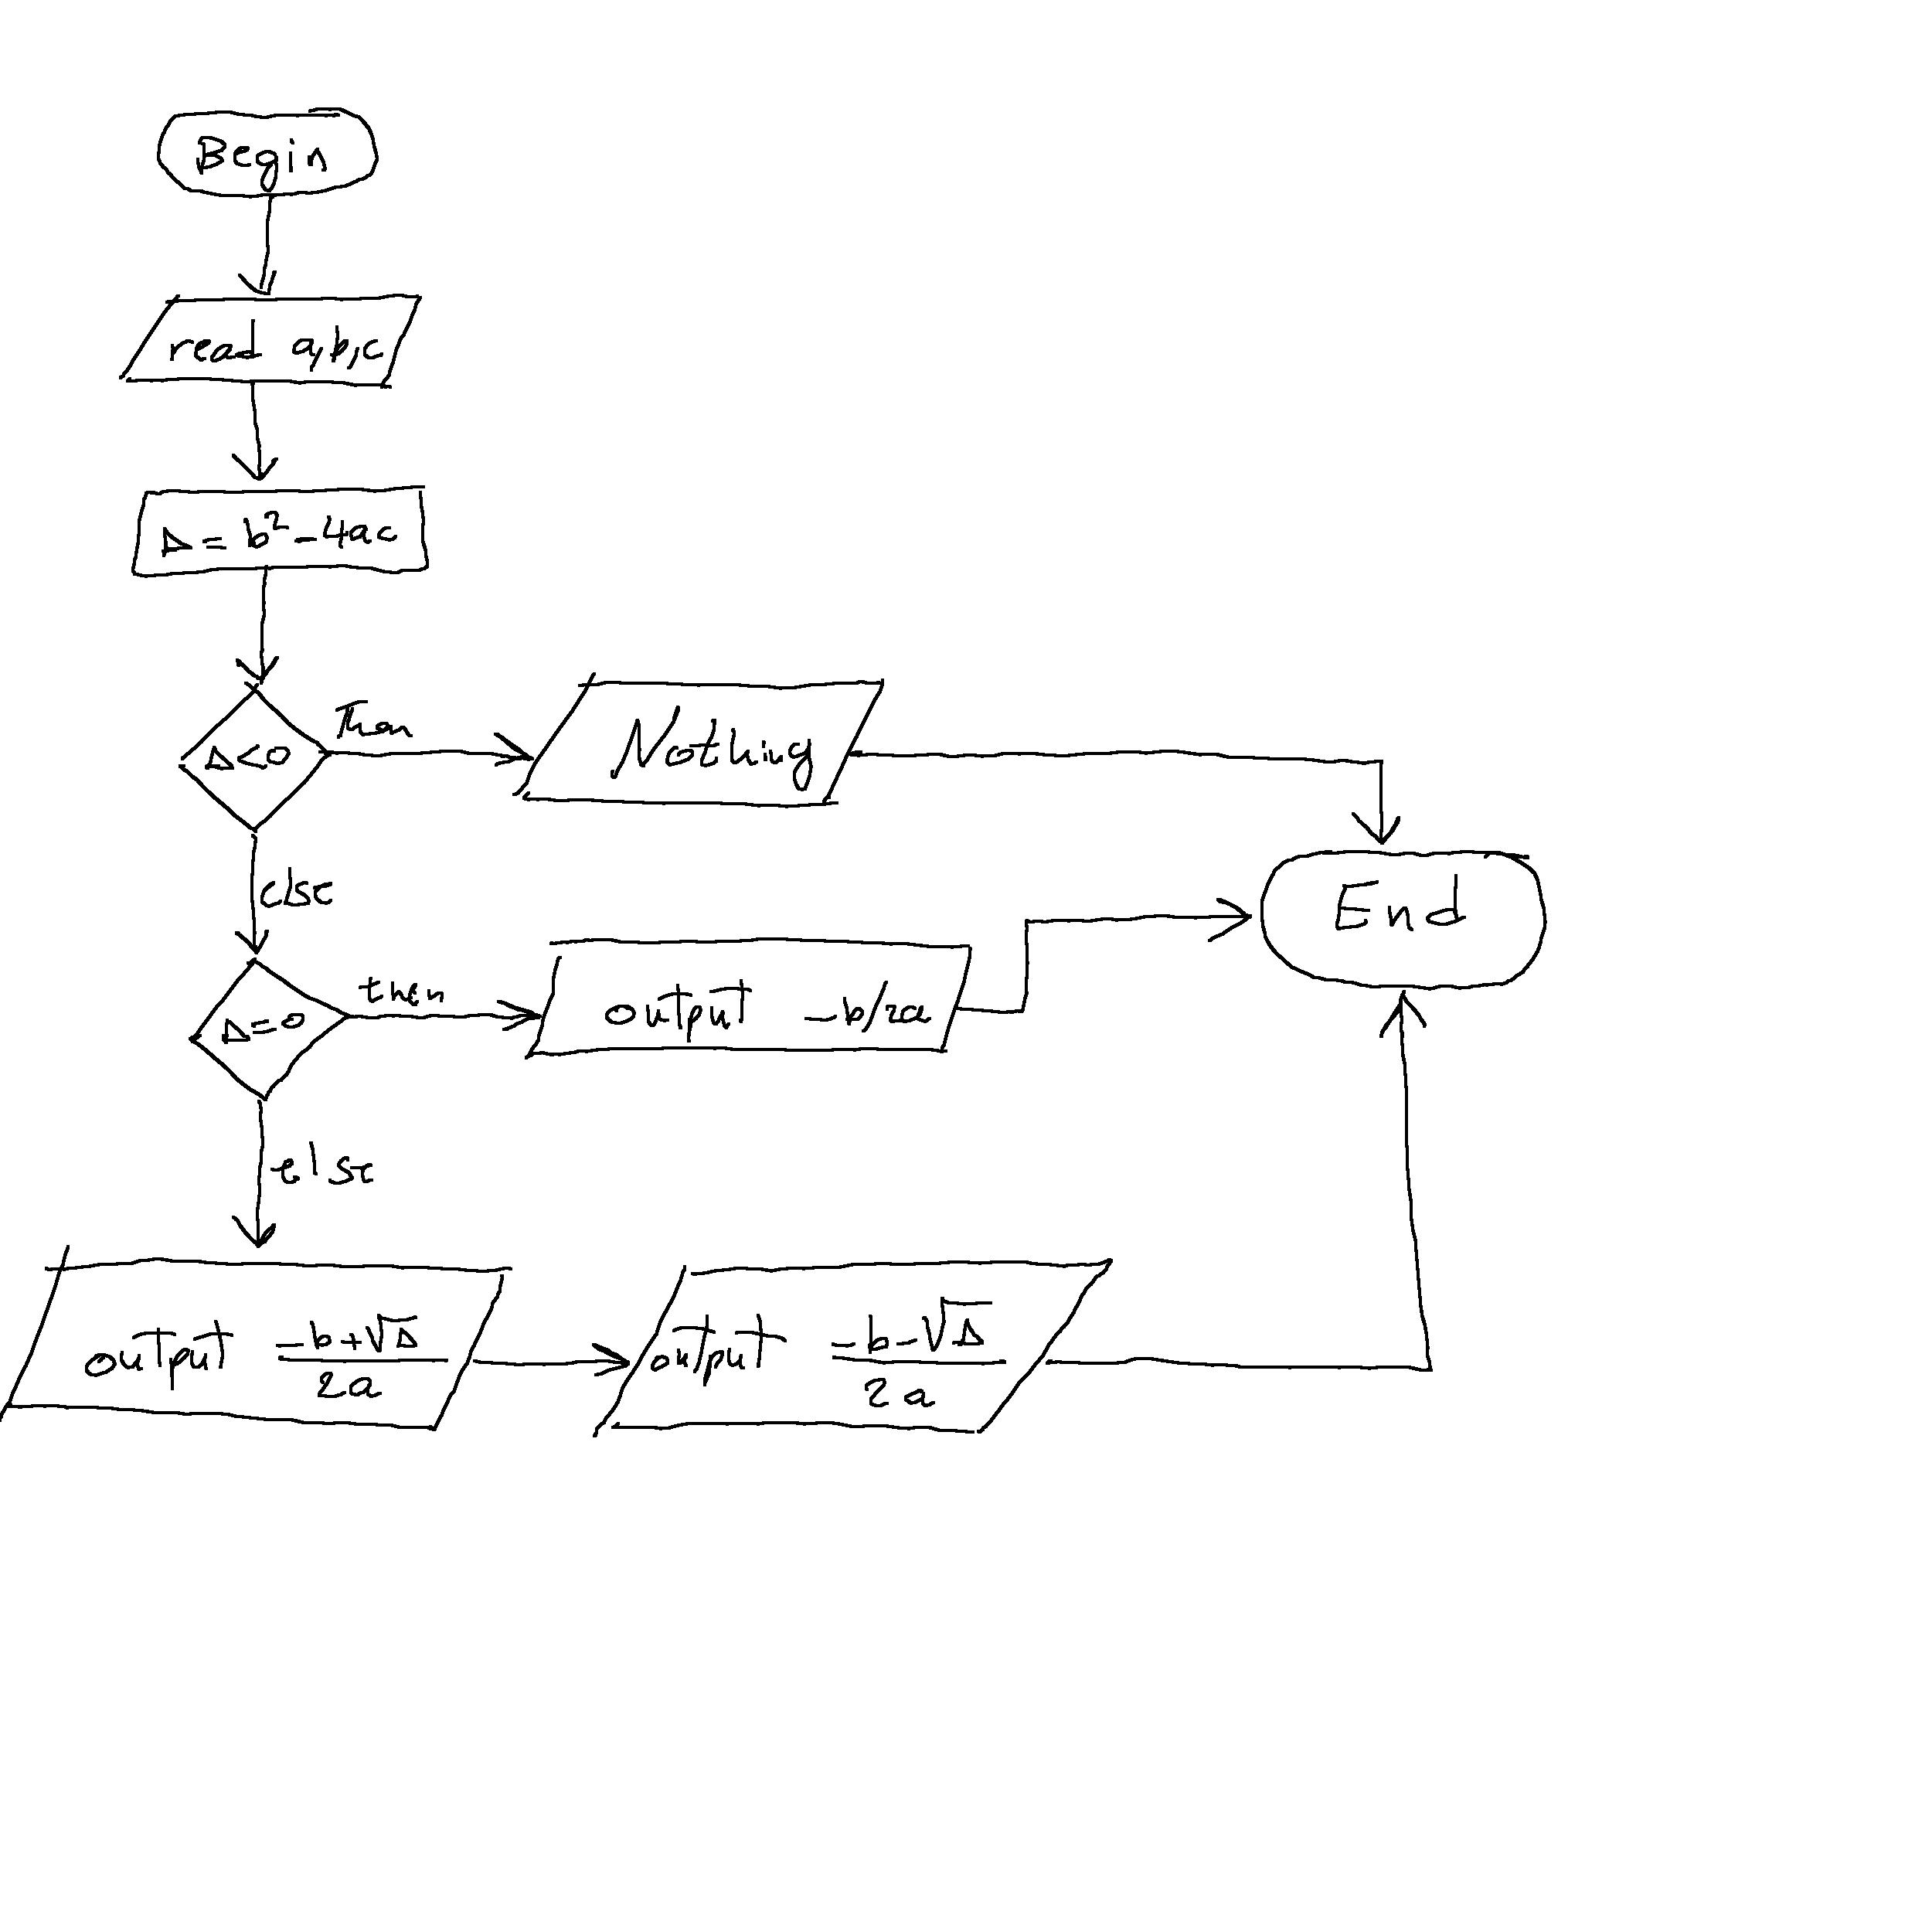 Begin
read a,b,c
Δ = b² - 4ac
Δ<0
Then
Nothing
else
End
Δ=0
then
output -b/2a
else
output (-b+√Δ)/2a
output (-b-√Δ)/2a